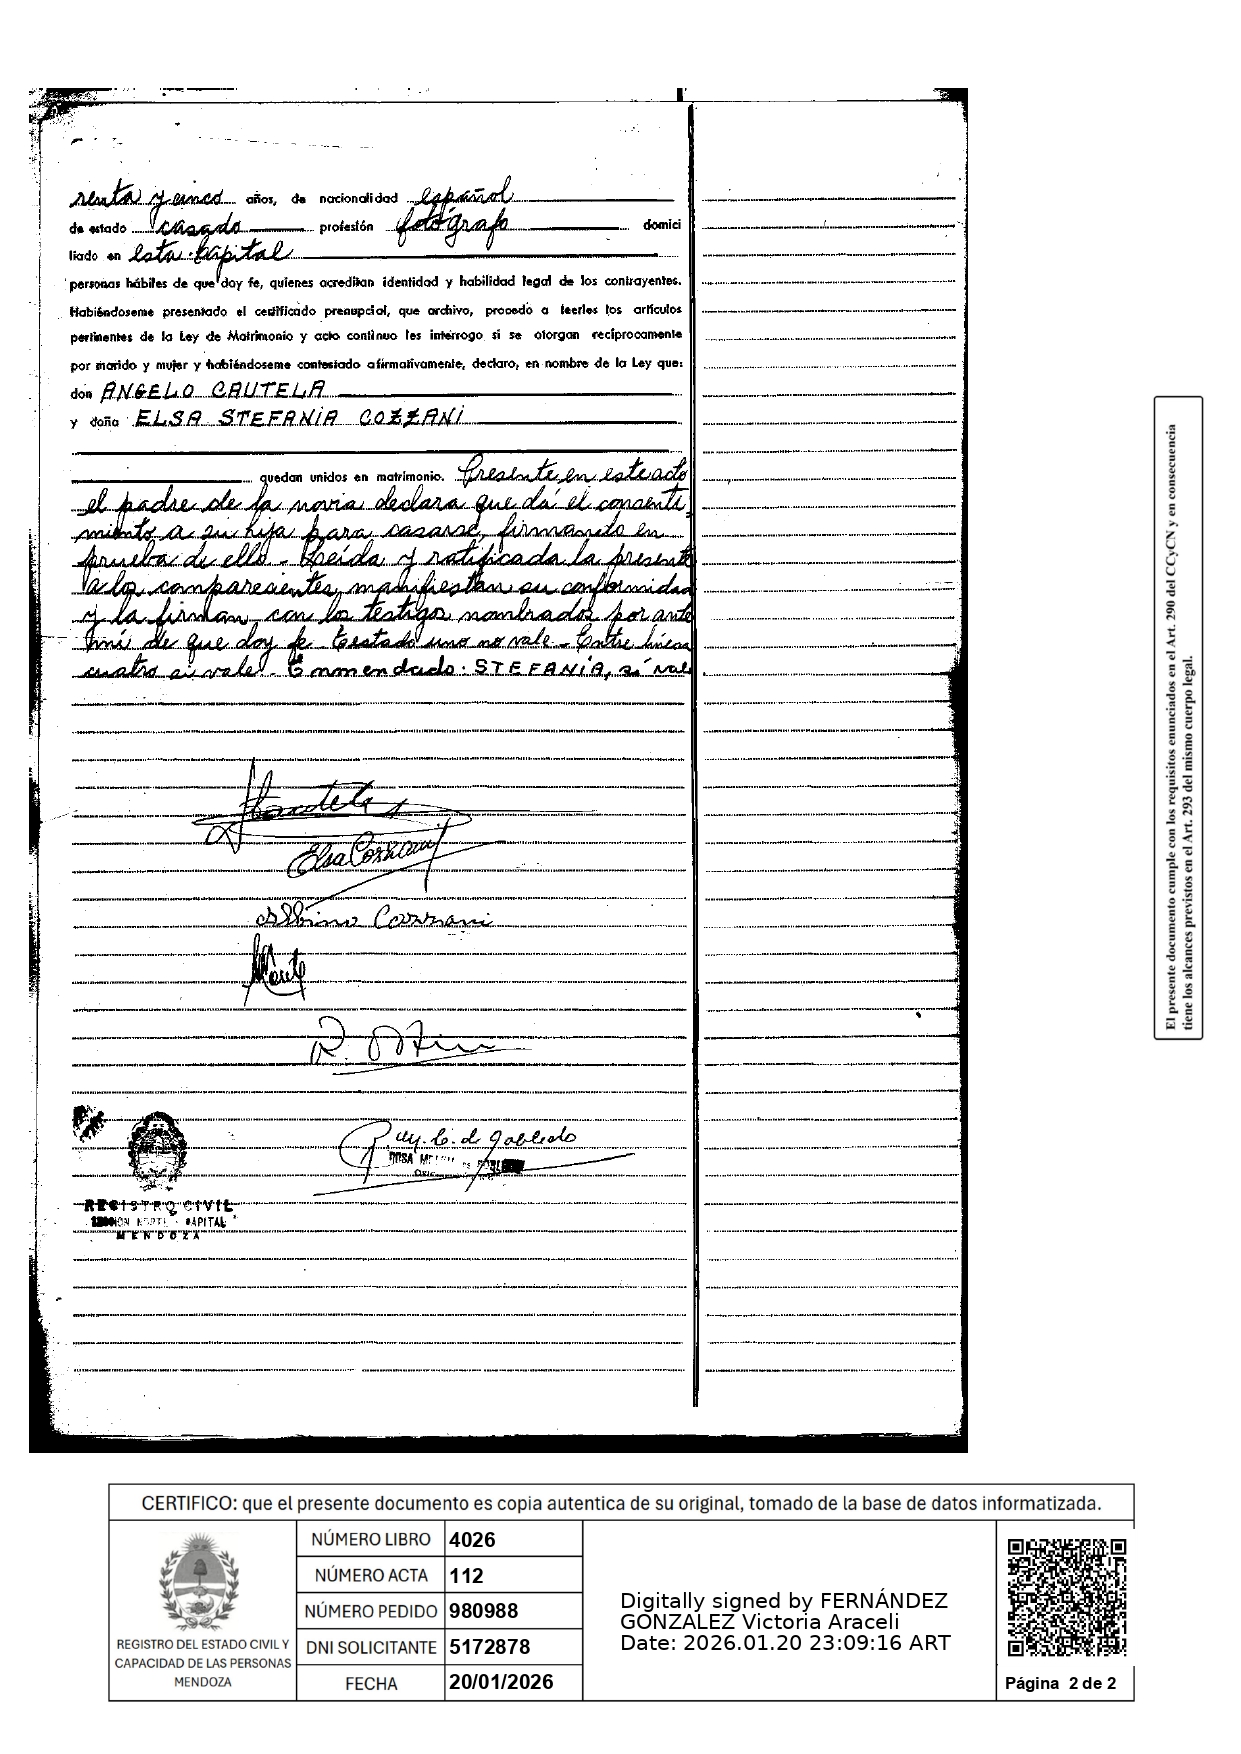 renta y cinco años, de nacionalidad español
de estado casado profesión fotógrafo domici
liado en esta Capital
personas hábiles de que doy fe, quienes acreditan identidad y habilidad legal de los contrayentes.
Habiéndoseme presentado el certificado prenupcial, que archivo, procedo a leerles los artículos
pertinentes de la Ley de Matrimonio y acto continuo les interrogo si se otorgan recíprocamente
por marido y mujer y habiéndoseme contestado afirmativamente, declaro, en nombre de la Ley que:
don ANGELO CAUTELA
y doña ELSA STEFANIA COZZANI
quedan unidos en matrimonio. Presente en este acto
el padre de la novia declara que dá el consenti
miento a su hija para casarse, firmando en
prueba de ello - Leída y ratificada la presente
a los comparecientes, manifiestan su conformidad
y la firman con los testigos nombrados por ante
mí de que doy fe Testado uno no vale - Entre líneas
cuatro si vale - Enmendado: STEFANIA, sí vale
Cautela
Elsa Cozzani
Albino Cozzani
R.
de Robledo
ROSA
REGISTRO CIVIL
SECCION NORTE - CAPITAL
MENDOZA
El presente documento cumple con los requisitos enunciados en el Art. 290 del CCyCN y en consecuencia
tiene los alcances previstos en el Art. 293 del mismo cuerpo legal.
CERTIFICO: que el presente documento es copia autentica de su original, tomado de la base de datos informatizada.
REGISTRO DEL ESTADO CIVIL Y
CAPACIDAD DE LAS PERSONAS
MENDOZA
NÚMERO LIBRO 4026
NÚMERO ACTA 112
NÚMERO PEDIDO 980988
DNI SOLICITANTE 5172878
FECHA 20/01/2026
Digitally signed by FERNÁNDEZ
GONZALEZ Victoria Araceli
Date: 2026.01.20 23:09:16 ART
Página 2 de 2